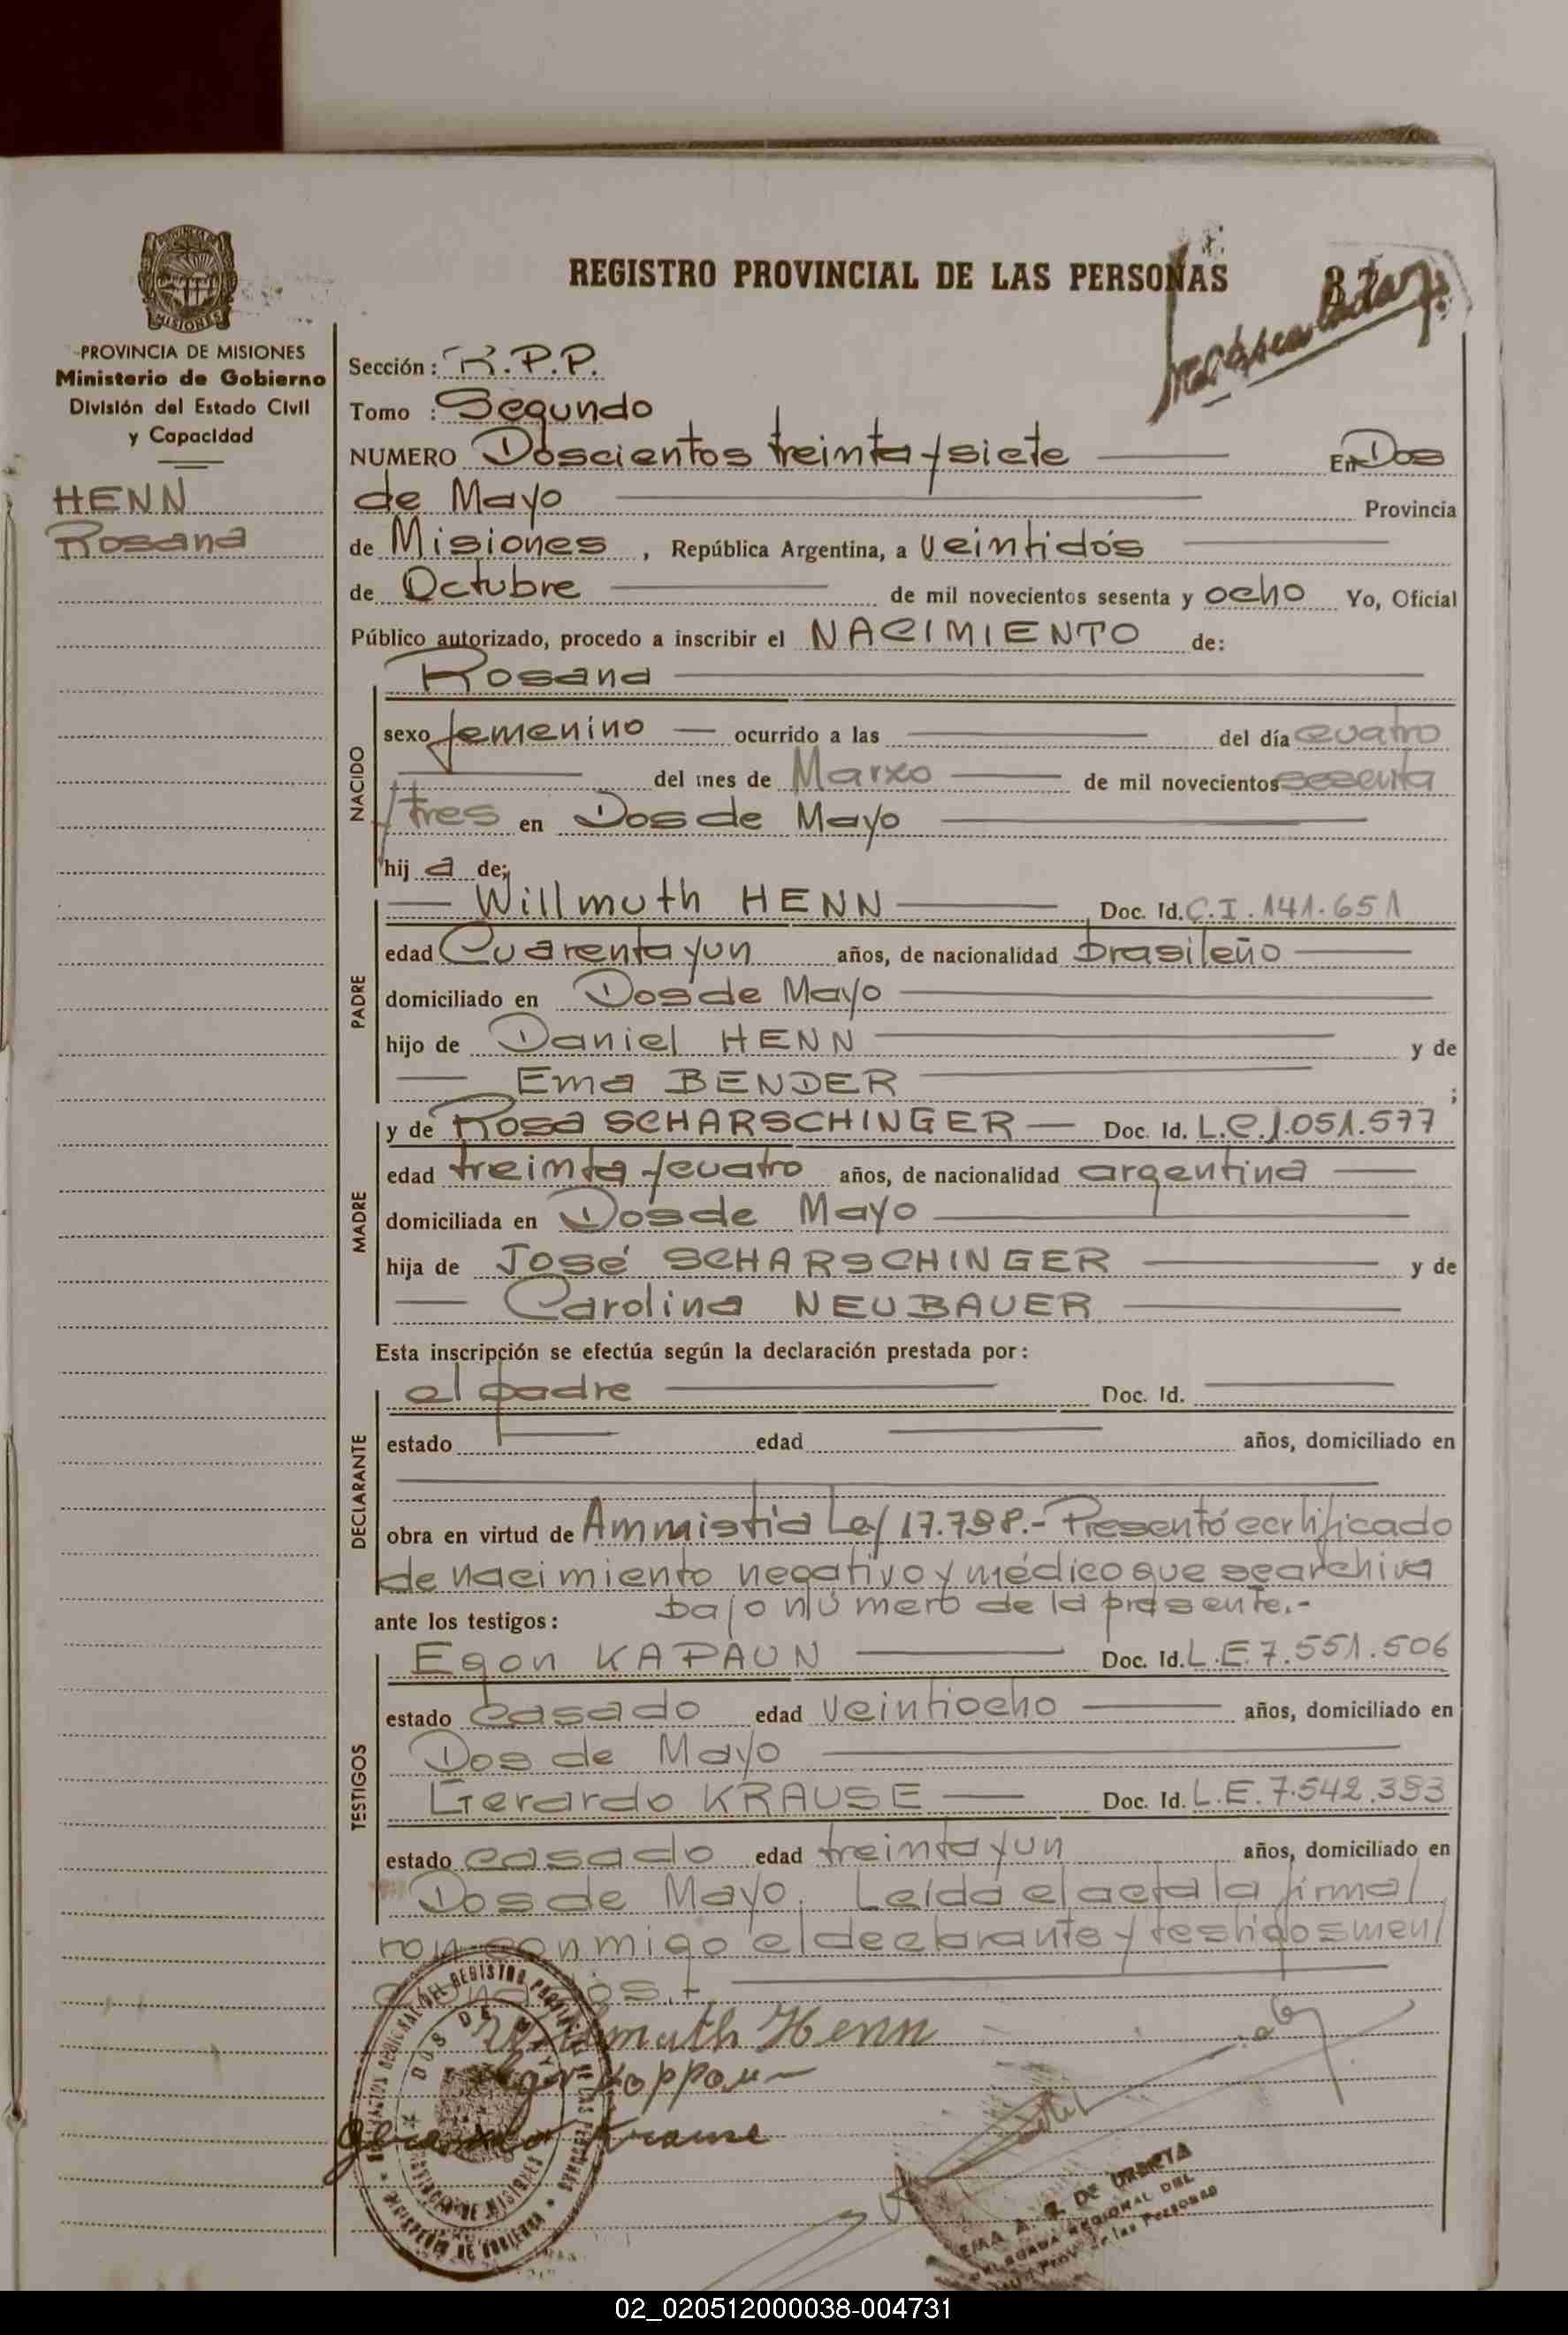 REGISTRO PROVINCIAL DE LAS PERSONAS
PROVINCIA DE MISIONES
Ministerio de Gobierno
División del Estado Civil
y Capacidad
HENN
Rosana
Sección: R.P.P.
Tomo : Segundo
NUMERO Doscientos treinta y siete En Dos
de Mayo Provincia
de Misiones , República Argentina, a veintidós
de Octubre de mil novecientos sesenta y ocho Yo, Oficial
Público autorizado, procedo a inscribir el NACIMIENTO de:
Rosana
NACIDO
sexo femenino ocurrido a las del día cuatro
del mes de Marzo de mil novecientos sesenta
y tres en Dos de Mayo
hij a de;
PADRE
Willmuth HENN Doc. Id. C.I. 141.651
edad Cuarenta y un años, de nacionalidad brasileño
domiciliado en Dos de Mayo
hijo de Daniel HENN y de
Ema BENDER ;
MADRE
y de Rosa SCHARSCHINGER Doc. Id. L.C. 1.051.577
edad treinta y cuatro años, de nacionalidad argentina
domiciliada en Dos de Mayo
hija de José SCHARSCHINGER y de
Carolina NEUBAUER
Esta inscripción se efectúa según la declaración prestada por:
DECLARANTE
el padre Doc. Id.
estado edad años, domiciliado en
obra en virtud de Ammistia Ley 17.798.- Presentó certificado
de nacimiento negativo y médico que se archiva
bajo número de la presente.-
ante los testigos:
TESTIGOS
Egon KAPAUN Doc. Id. L.E. 7.551.506
estado Casado edad veintiocho años, domiciliado en
Dos de Mayo
Gerardo KRAUSE Doc. Id. L.E. 7.542.393
estado casado edad treinta y un años, domiciliado en
Dos de Mayo. Leída el acta la firma/
ron conmigo el declarante y testigos men/
cionados.-
Willmuth Henn
Egon Koppaun
Gerardo Krause
DOS DE MAYO
DE URRETA
REGIONAL DEL
de las Personas
02_020512000038-004731